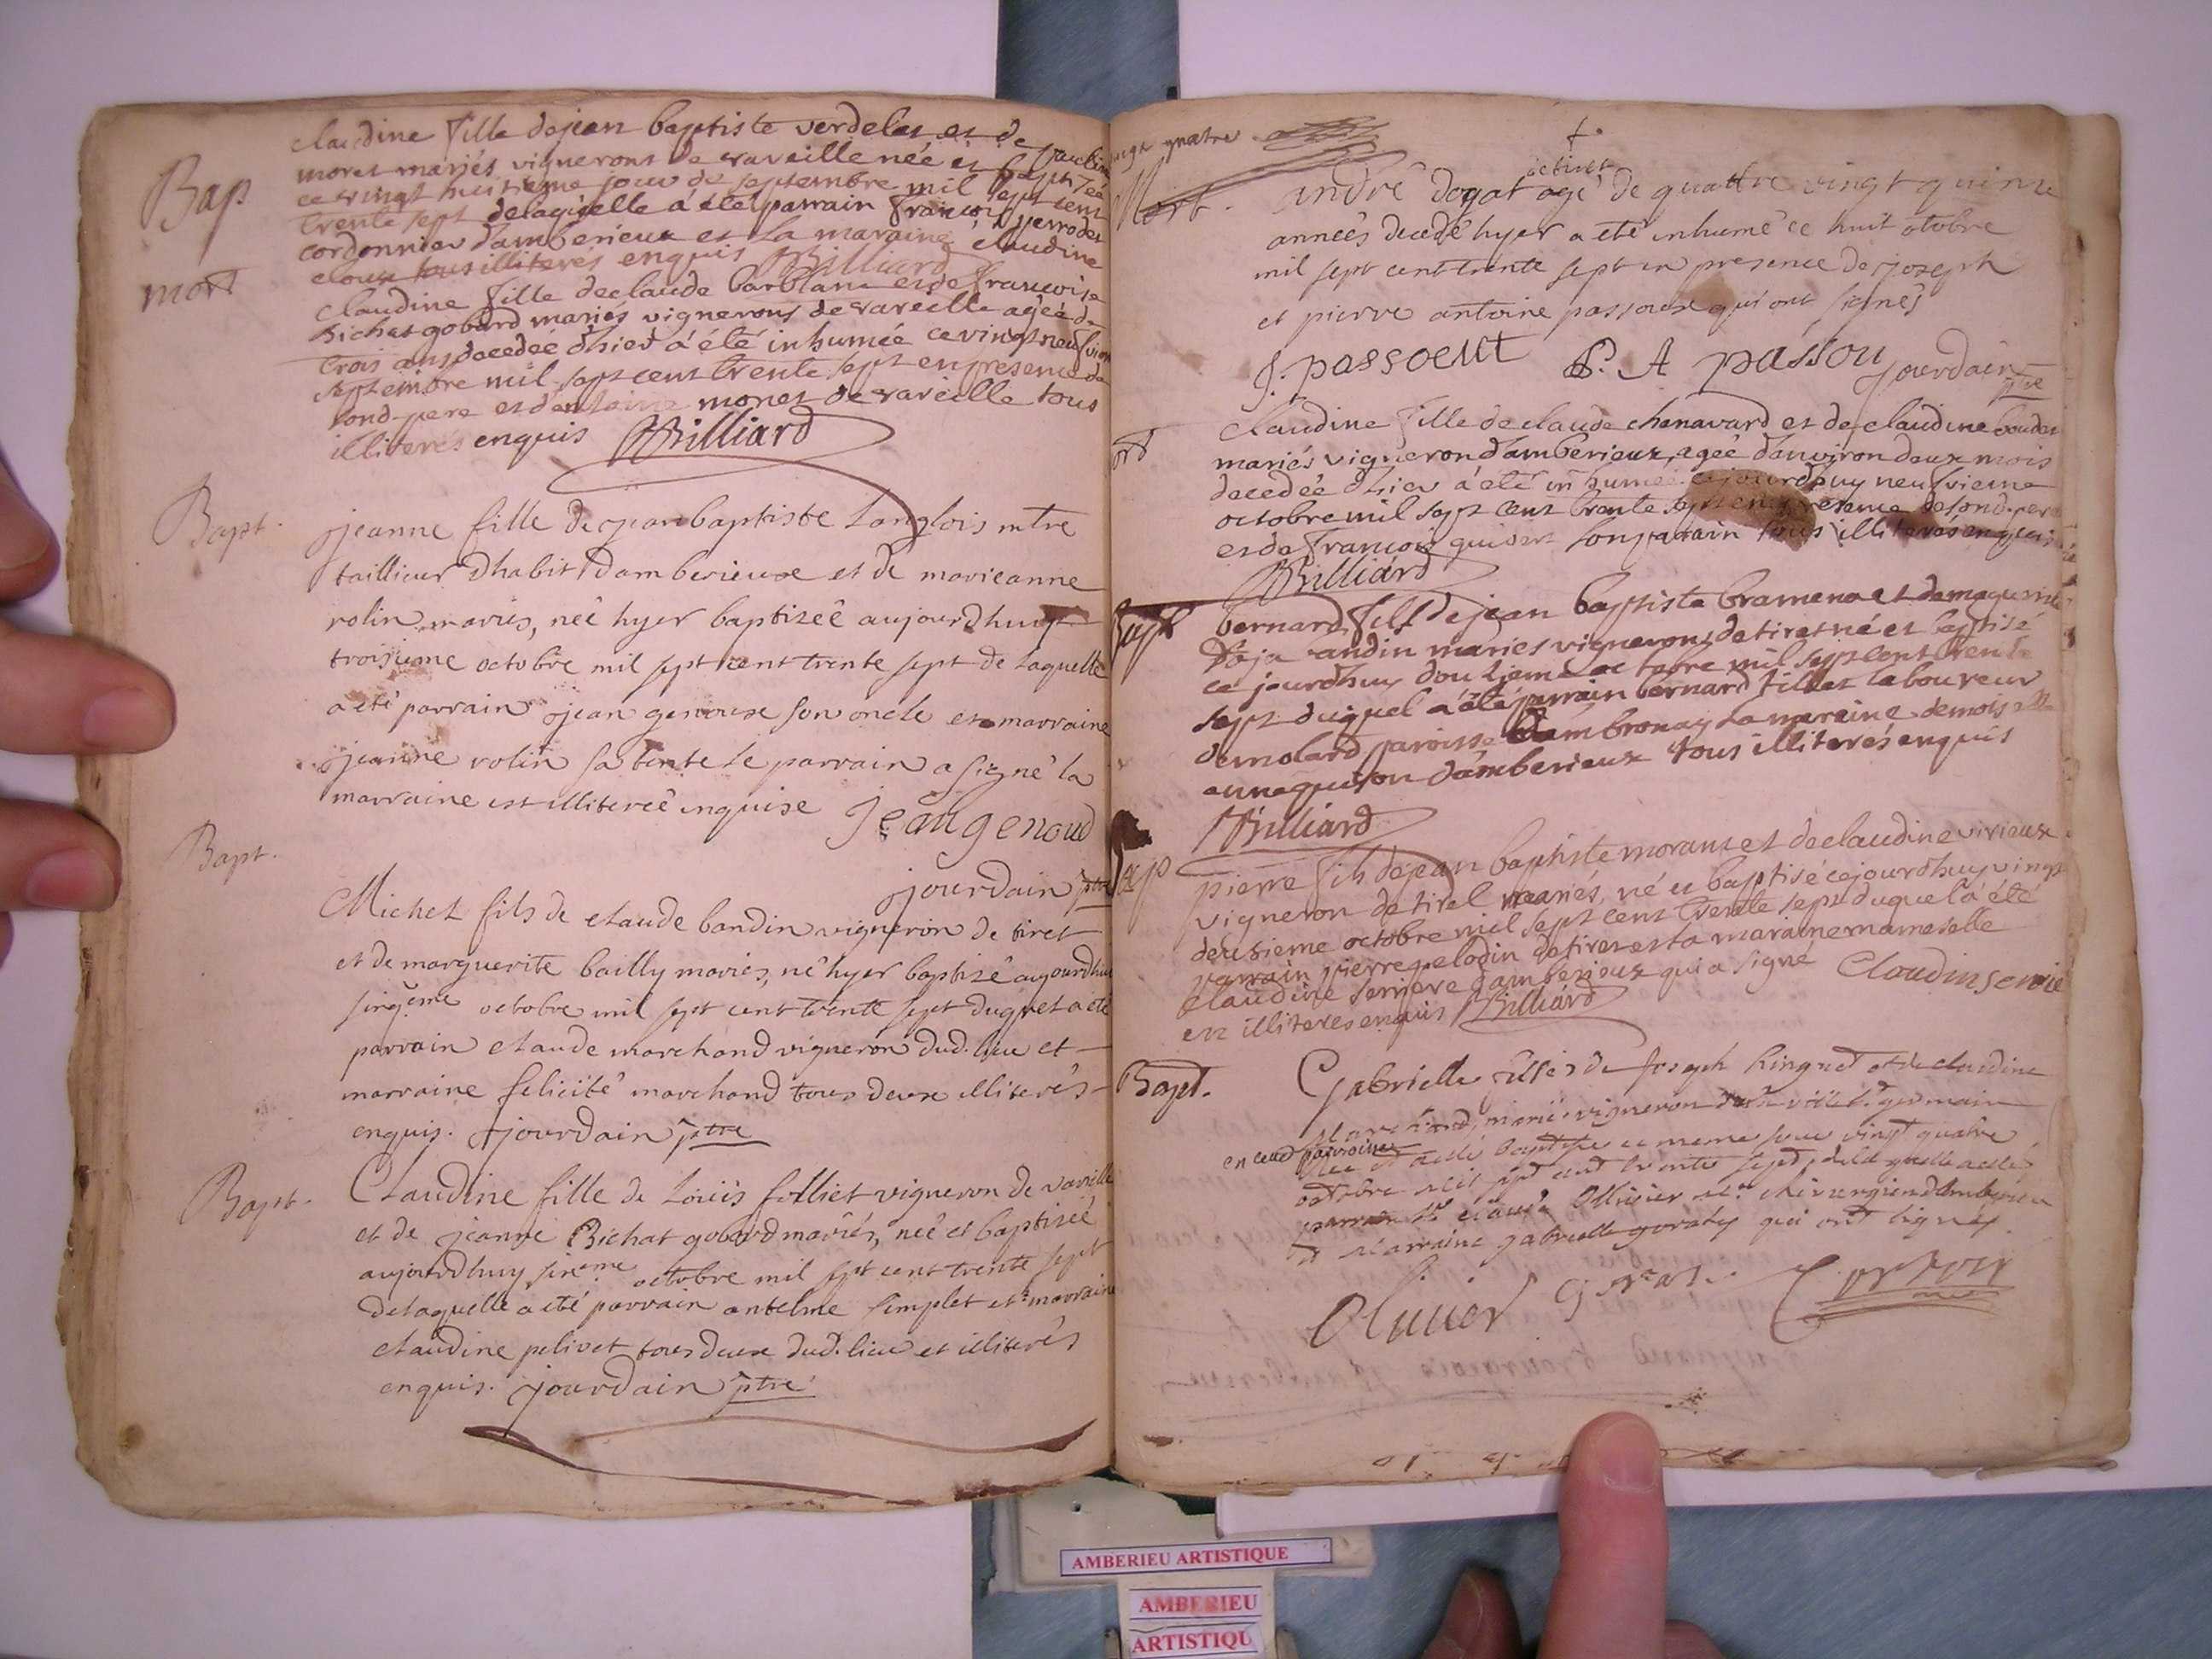 Bap
claudine fille dejean baptiste verdelet et de claudine
moret mariés vignerons de vareille née et baptisée
ce vingt huitieme jour de septembre mil sept cent
trente sept delaquelle a été parrain françois perrodet
cordonnier d'amberieux et la maraine claudine
cloux tous illiterés enquis Billiard
mort
claudine fille declaude barblanc et de francoise
Bichat gobard mariés vignerons de vareille agée de
trois ans decedée d'hier a été inhumée ce vingt neufviem
septembre mil sept cent trente sept en presence de
sond. pere et d'antoine monet de vareille tous
illiterés enquis Billiard
Bapt.
jeanne fille de jean baptiste Langlois mtre
taillieur dhabit d'amberieux et de marieanne
rolin mariés, neé hyer baptizeé aujourdhuy
troisieme octobre mil sept cent trente sept de laquelle
a eté parrain jean genoux son oncle et marraine
jeanne rolin sa tente le parrain a signé la
marraine est illitereé enquise Jean genoud
jourdain ptre
Bapt.
Michel fils de claude bandin vigneron de tiret
et de marguerite bailly mariés, né hyer baptizé aujourdhuy
sinqeme octobre mil sept cent trente sept duquel a eté
parrain claude marchand vigneron dud. lieu et
marraine felicité marchand tous deux illiterés
enquis. jourdain ptre
Bapt.
Claudine fille de Loüis folliet vigneron de vareille
et de jeanne Bichat gobard mariés, neé et baptizeé
aujourdhuy sixeme octobre mil sept cent trente sept
delaquelle a eté parrain antelme simplet et marraine
claudine pelivet tous deux dud. lieu et illiterés
enquis. jourdain ptre
vingt quatre
Mort.
andré dogat agé de quattre vingt quinze
de tiret
anneés decedé hyer a eté inhumé ce huit otobre
mil sept cent trente sept en presence de joseph
et pierre antoine passoux qui ont signés
J. passoeut P. A passou jourdain ptre
mort
claudine fille de claude chenavard et de claudine boudet
mariés vigneron d'amberieux, ageé d'anviron deux mois
decedée d'hier a été inhumée cejourdhuy neufvieme
octobre mil sept cent trente sept en presence de sond. pere
et de francois qui est son parrain tous illiterés enquis
Billiard
Bapt
bernard fils de jean baptiste bramena et de
andin mariés vignerons de tiret né et baptisé
ce jourdhuy douzieme octobre mil sept cent trente
sept duquel a été parrain bernard tillet laboureur
demolard paroisse d'ambronay la maraine demoiselle
anne guison d'amberieux tous illiterés enquis
Billiard
Bap
pierre fils dejean baptiste morant et declaudine virieux
vigneron de tirel mariés, né et baptisé cejourdhuy vingt
deusieme octobre mil sept cent trente sept duquel a été
parrain pierre pelodin de tiret et la maraine mameselle
claudine serriere d'amberieux qui a signé Claudin serrie
et illiteres enquis Billiard
Bapt.
Gabrielle fille de Joseph Ringuet et de claudine
marchand, marié vigneron de St germain
née et a été baptisée ce meme jour vingt quatre
octobre mil sept cent trente sept, de la quelle a été
parrain Sr claude Ollivier mre chirurgien d'Amberieu
et maraine gabrielle goraty qui ont signés.
Oluuier
AMBERIEU ARTISTIQUE
AMBERIEU
ARTISTIQU